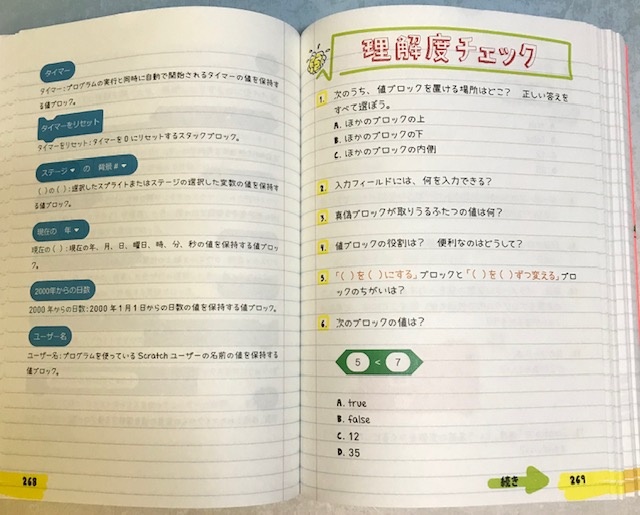 タイマー
タイマー：プログラムの実行と同時に自動で開始されるタイマーの値を保持す
る値ブロック。
タイマーをリセット
タイマーをリセット：タイマーを0にリセットするスタックブロック。
ステージ▼ の 背景#▼
( )の( )：選択したスプライトまたはステージの選択した変数の値を保持す
る値ブロック。
現在の 年▼
現在の( )：現在の年、月、日、曜日、時、分、秒の値を保持する値ブロッ
ク。
2000年からの日数
2000年からの日数：2000年1月1日からの日数の値を保持する値ブロック。
ユーザー名
ユーザー名：プログラムを使っているScratchユーザーの名前の値を保持する
値ブロック。
268
理解度チェック
1. 次のうち、値ブロックを置ける場所はどこ？ 正しい答えを
すべて選ぼう。
A. ほかのブロックの上
B. ほかのブロックの下
C. ほかのブロックの内側
2. 入力フィールドには、何を入力できる？
3. 真偽ブロックが取りうるふたつの値は何？
4. 値ブロックの役割は？ 便利なのはどうして？
5. 「( )を( )にする」ブロックと「( )を( )ずつ変える」ブロ
ックのちがいは？
6. 次のブロックの値は？
5 < 7
A. true
B. false
C. 12
D. 35
続き
269